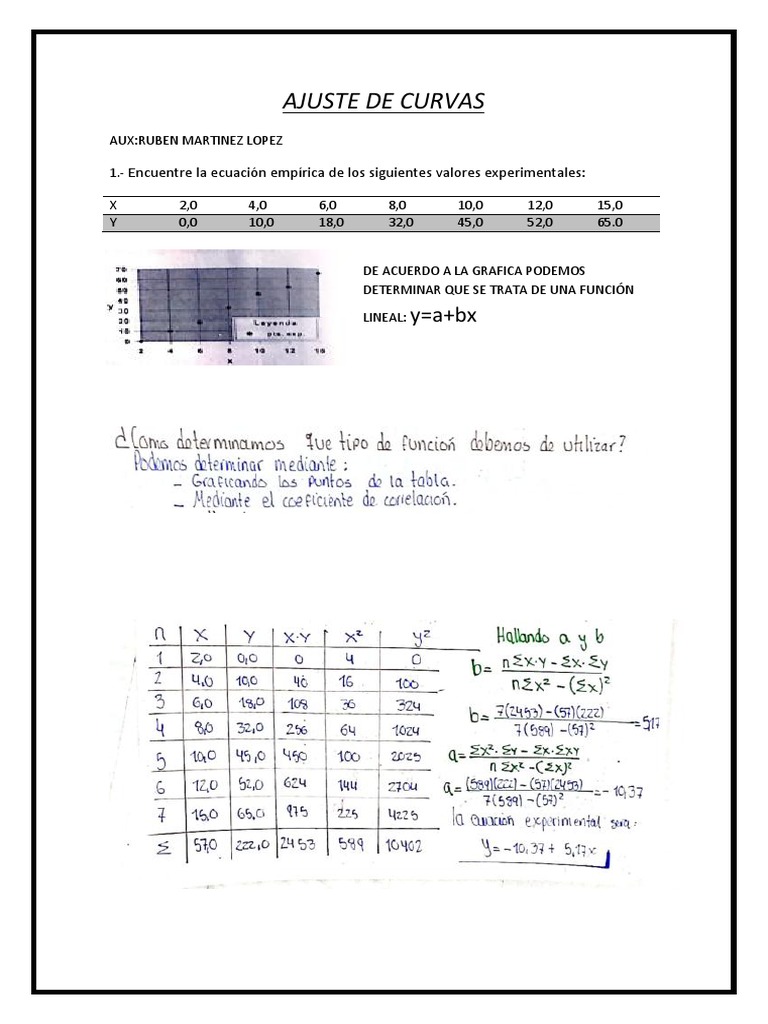 AJUSTE DE CURVAS
AUX:RUBEN MARTINEZ LOPEZ
1.- Encuentre la ecuación empírica de los siguientes valores experimentales:
X 2,0 4,0 6,0 8,0 10,0 12,0 15,0
Y 0,0 10,0 18,0 32,0 45,0 52,0 65.0
DE ACUERDO A LA GRAFICA PODEMOS
DETERMINAR QUE SE TRATA DE UNA FUNCIÓN
LINEAL: y=a+bx
70
60
50
40
y
30
20
10
0
Leyenda
pts. exp.
2 4 6 8 10 12
x
¿Como determinamos que tipo de función debemos de utilizar?
Podemos determinar mediante:
- Graficando los puntos de la tabla.
- Mediante el coeficiente de correlación.
n X Y X·Y X² y²
1 2,0 0,0 0 4 0
2 4,0 10,0 40 16 100
3 6,0 18,0 108 36 324
4 8,0 32,0 256 64 1024
5 10,0 45,0 450 100 2025
6 12,0 52,0 624 144 2704
7 15,0 65,0 975 225 4225
Σ 57,0 222,0 2453 589 10402
Hallando a y b
b= nΣX·Y - ΣX·ΣY / nΣX² - (Σx)²
b= 7(2453) - (57)(222) / 7(589) - (57)² = 5,17
a= Σx²·Σy - Σx·Σxy / nΣx² - (Σx)²
a= (589)(222) - (57)(2453) / 7(589) - (57)² = - 10,37
la ecuación experimental sera:
Y= -10,37 + 5,17x